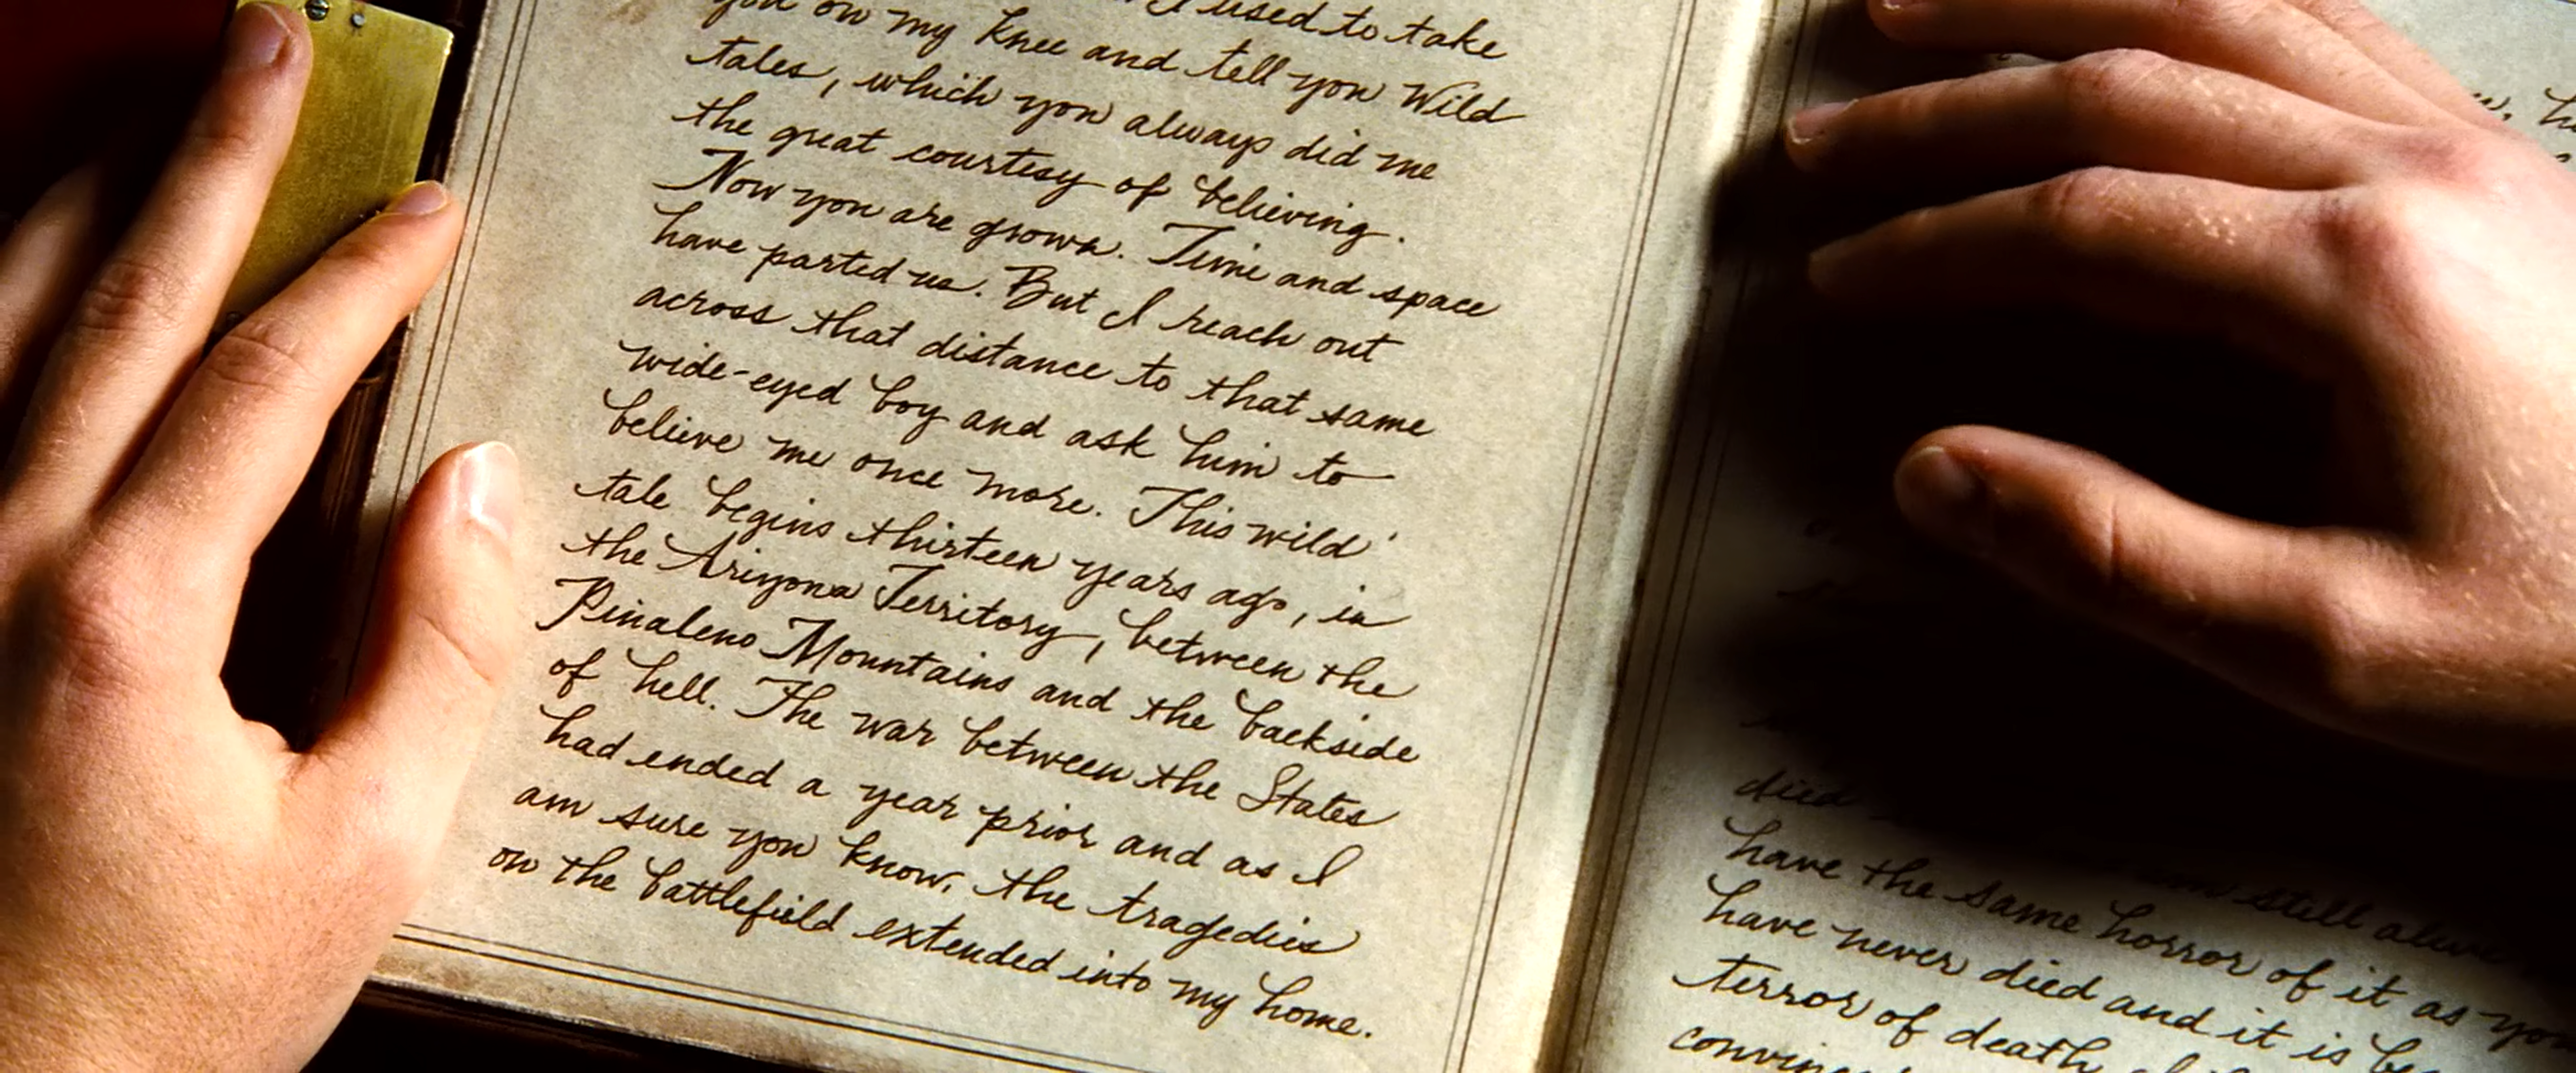 I used to take
you on my knee and tell you Wild
tales, which you always did me
the great courtesy of believing.
Now you are grown. Time and space
have parted us. But I reach out
across that distance to that same
wide-eyed boy and ask him to
believe me once more. This wild
tale begins thirteen years ago, in
the Arizona Territory, between the
Pinaleno Mountains and the backside
of hell. The war between the States
had ended a year prior and as I
am sure you know, the tragedies
on the battlefield extended into my home.
died
am still alive
have the same horror of it as you
have never died and it is
terror of death